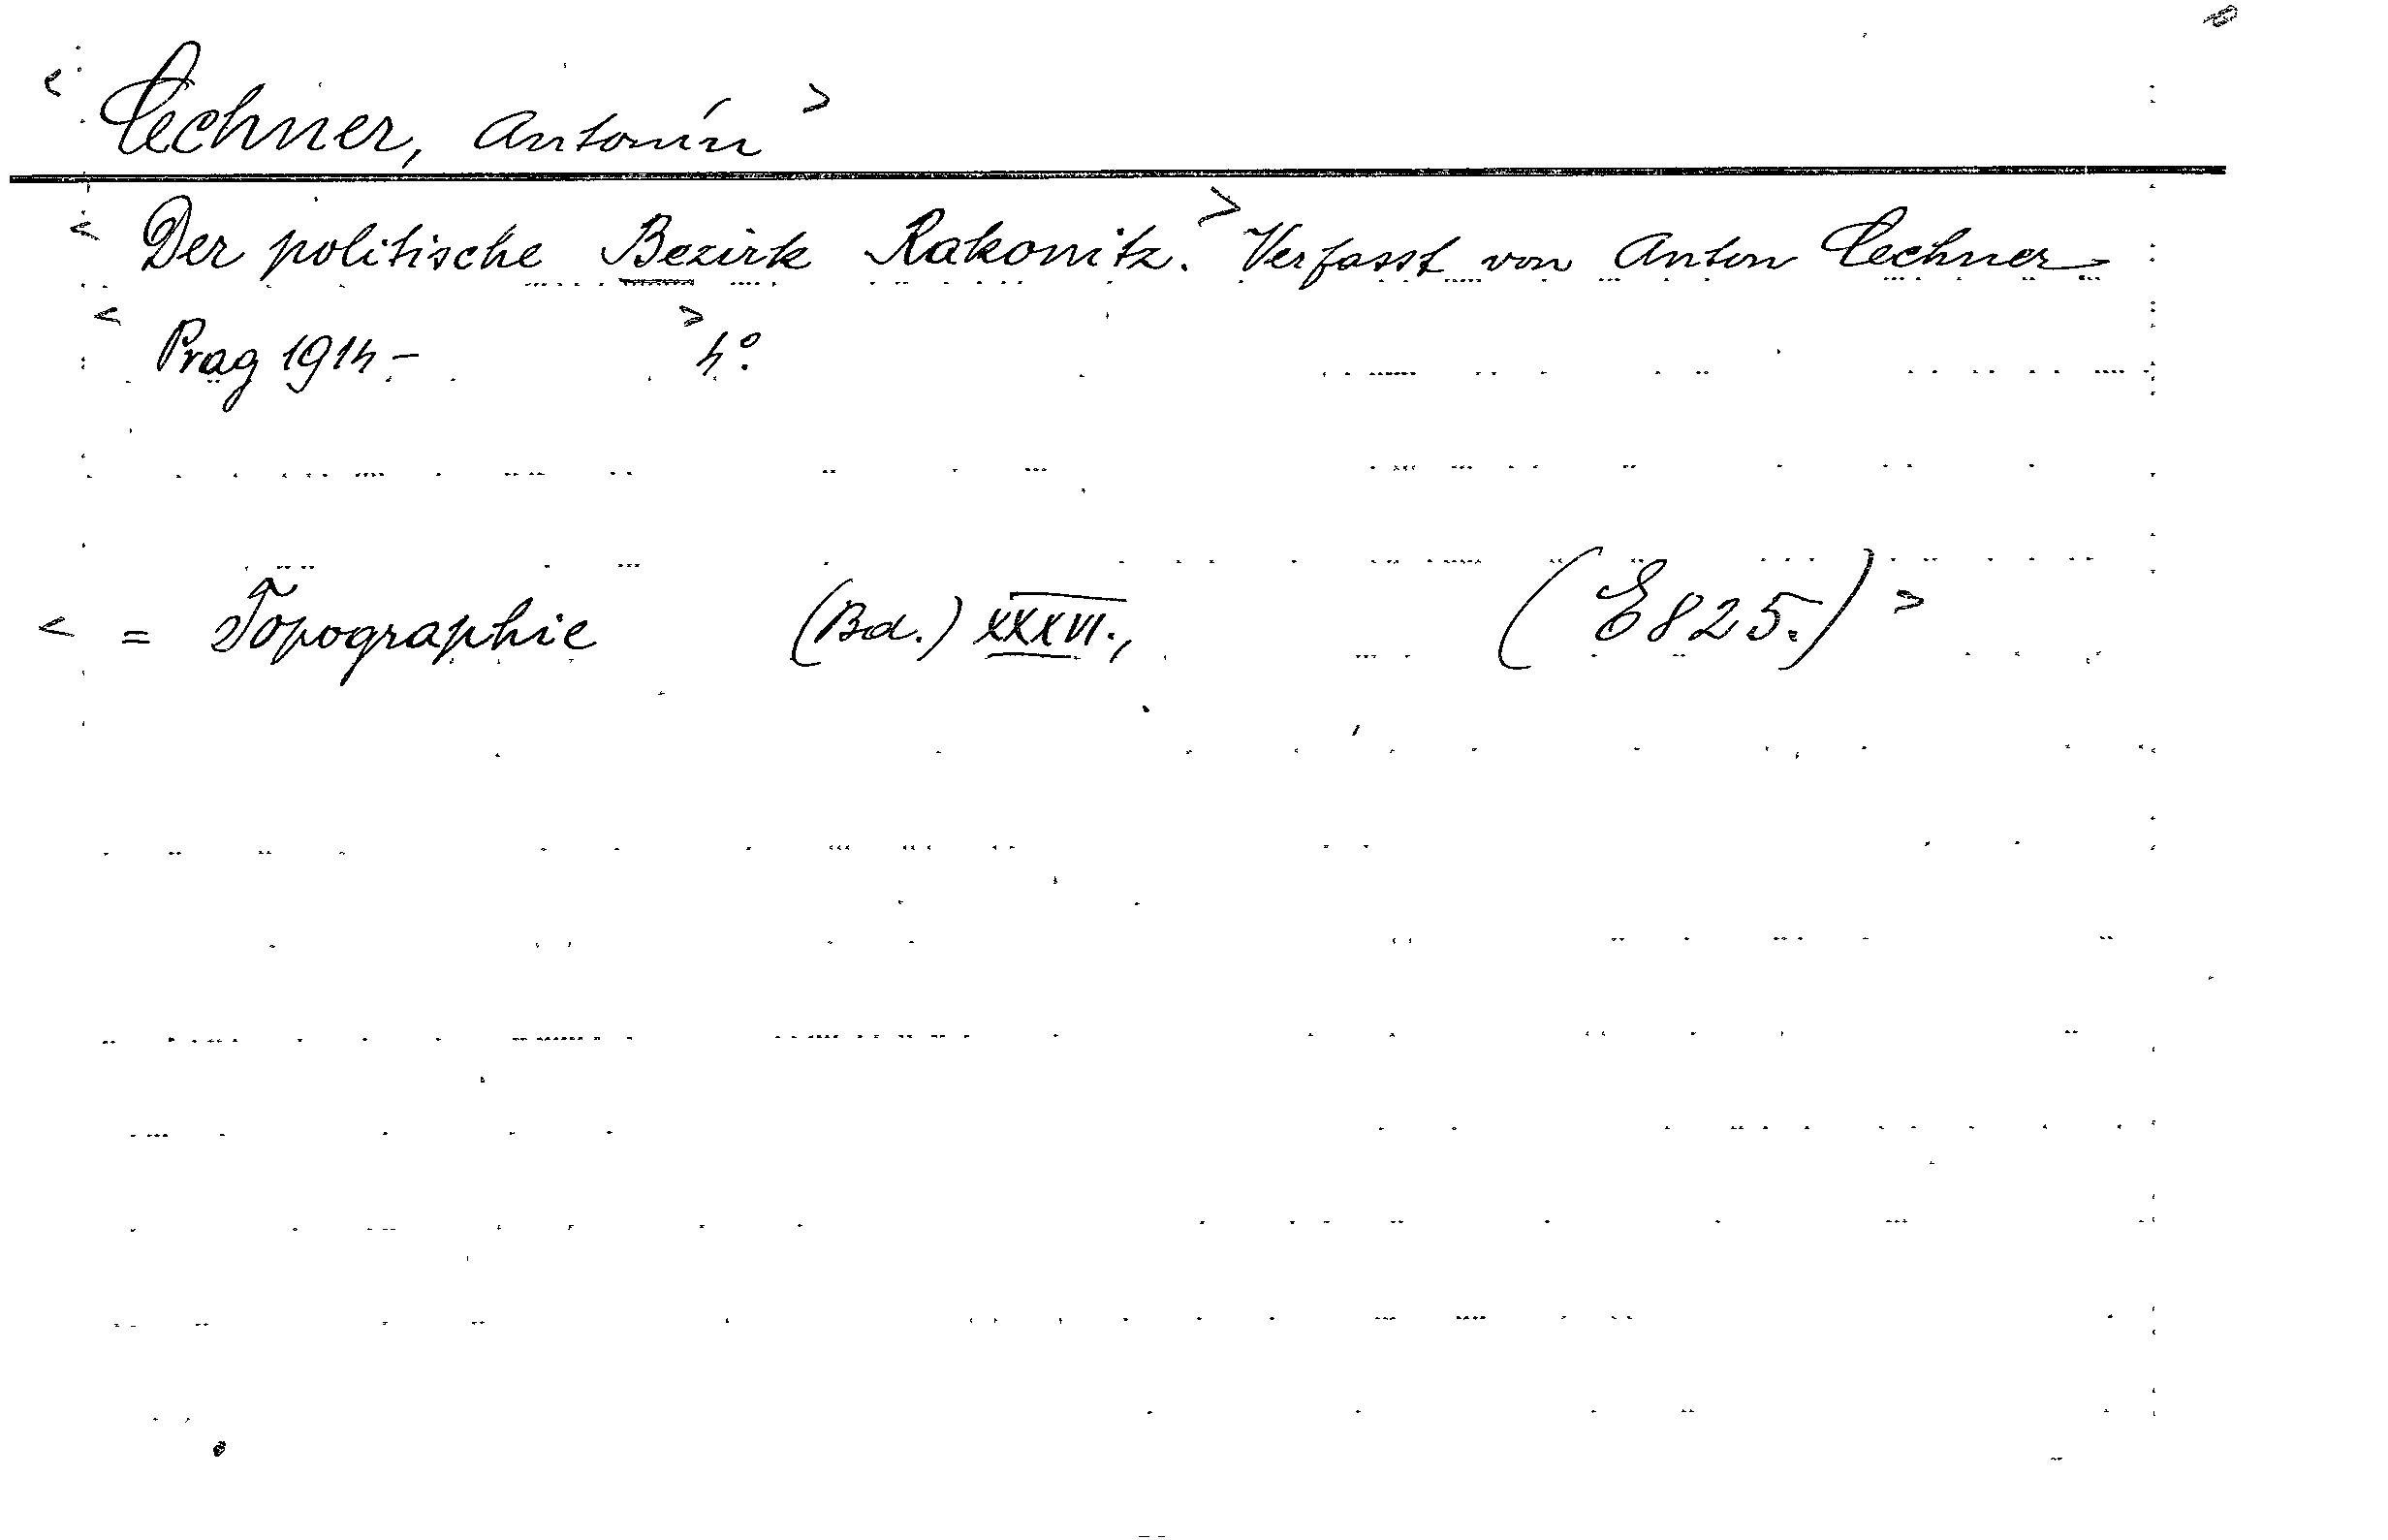 < Cechner, Antonín >
< Der politische Bezirk Rakonitz. > Verfasst von Anton Cechner
< Prag 1914 – > 4°.
< = Topographie (Bd.) XXXVI., (E825.) >